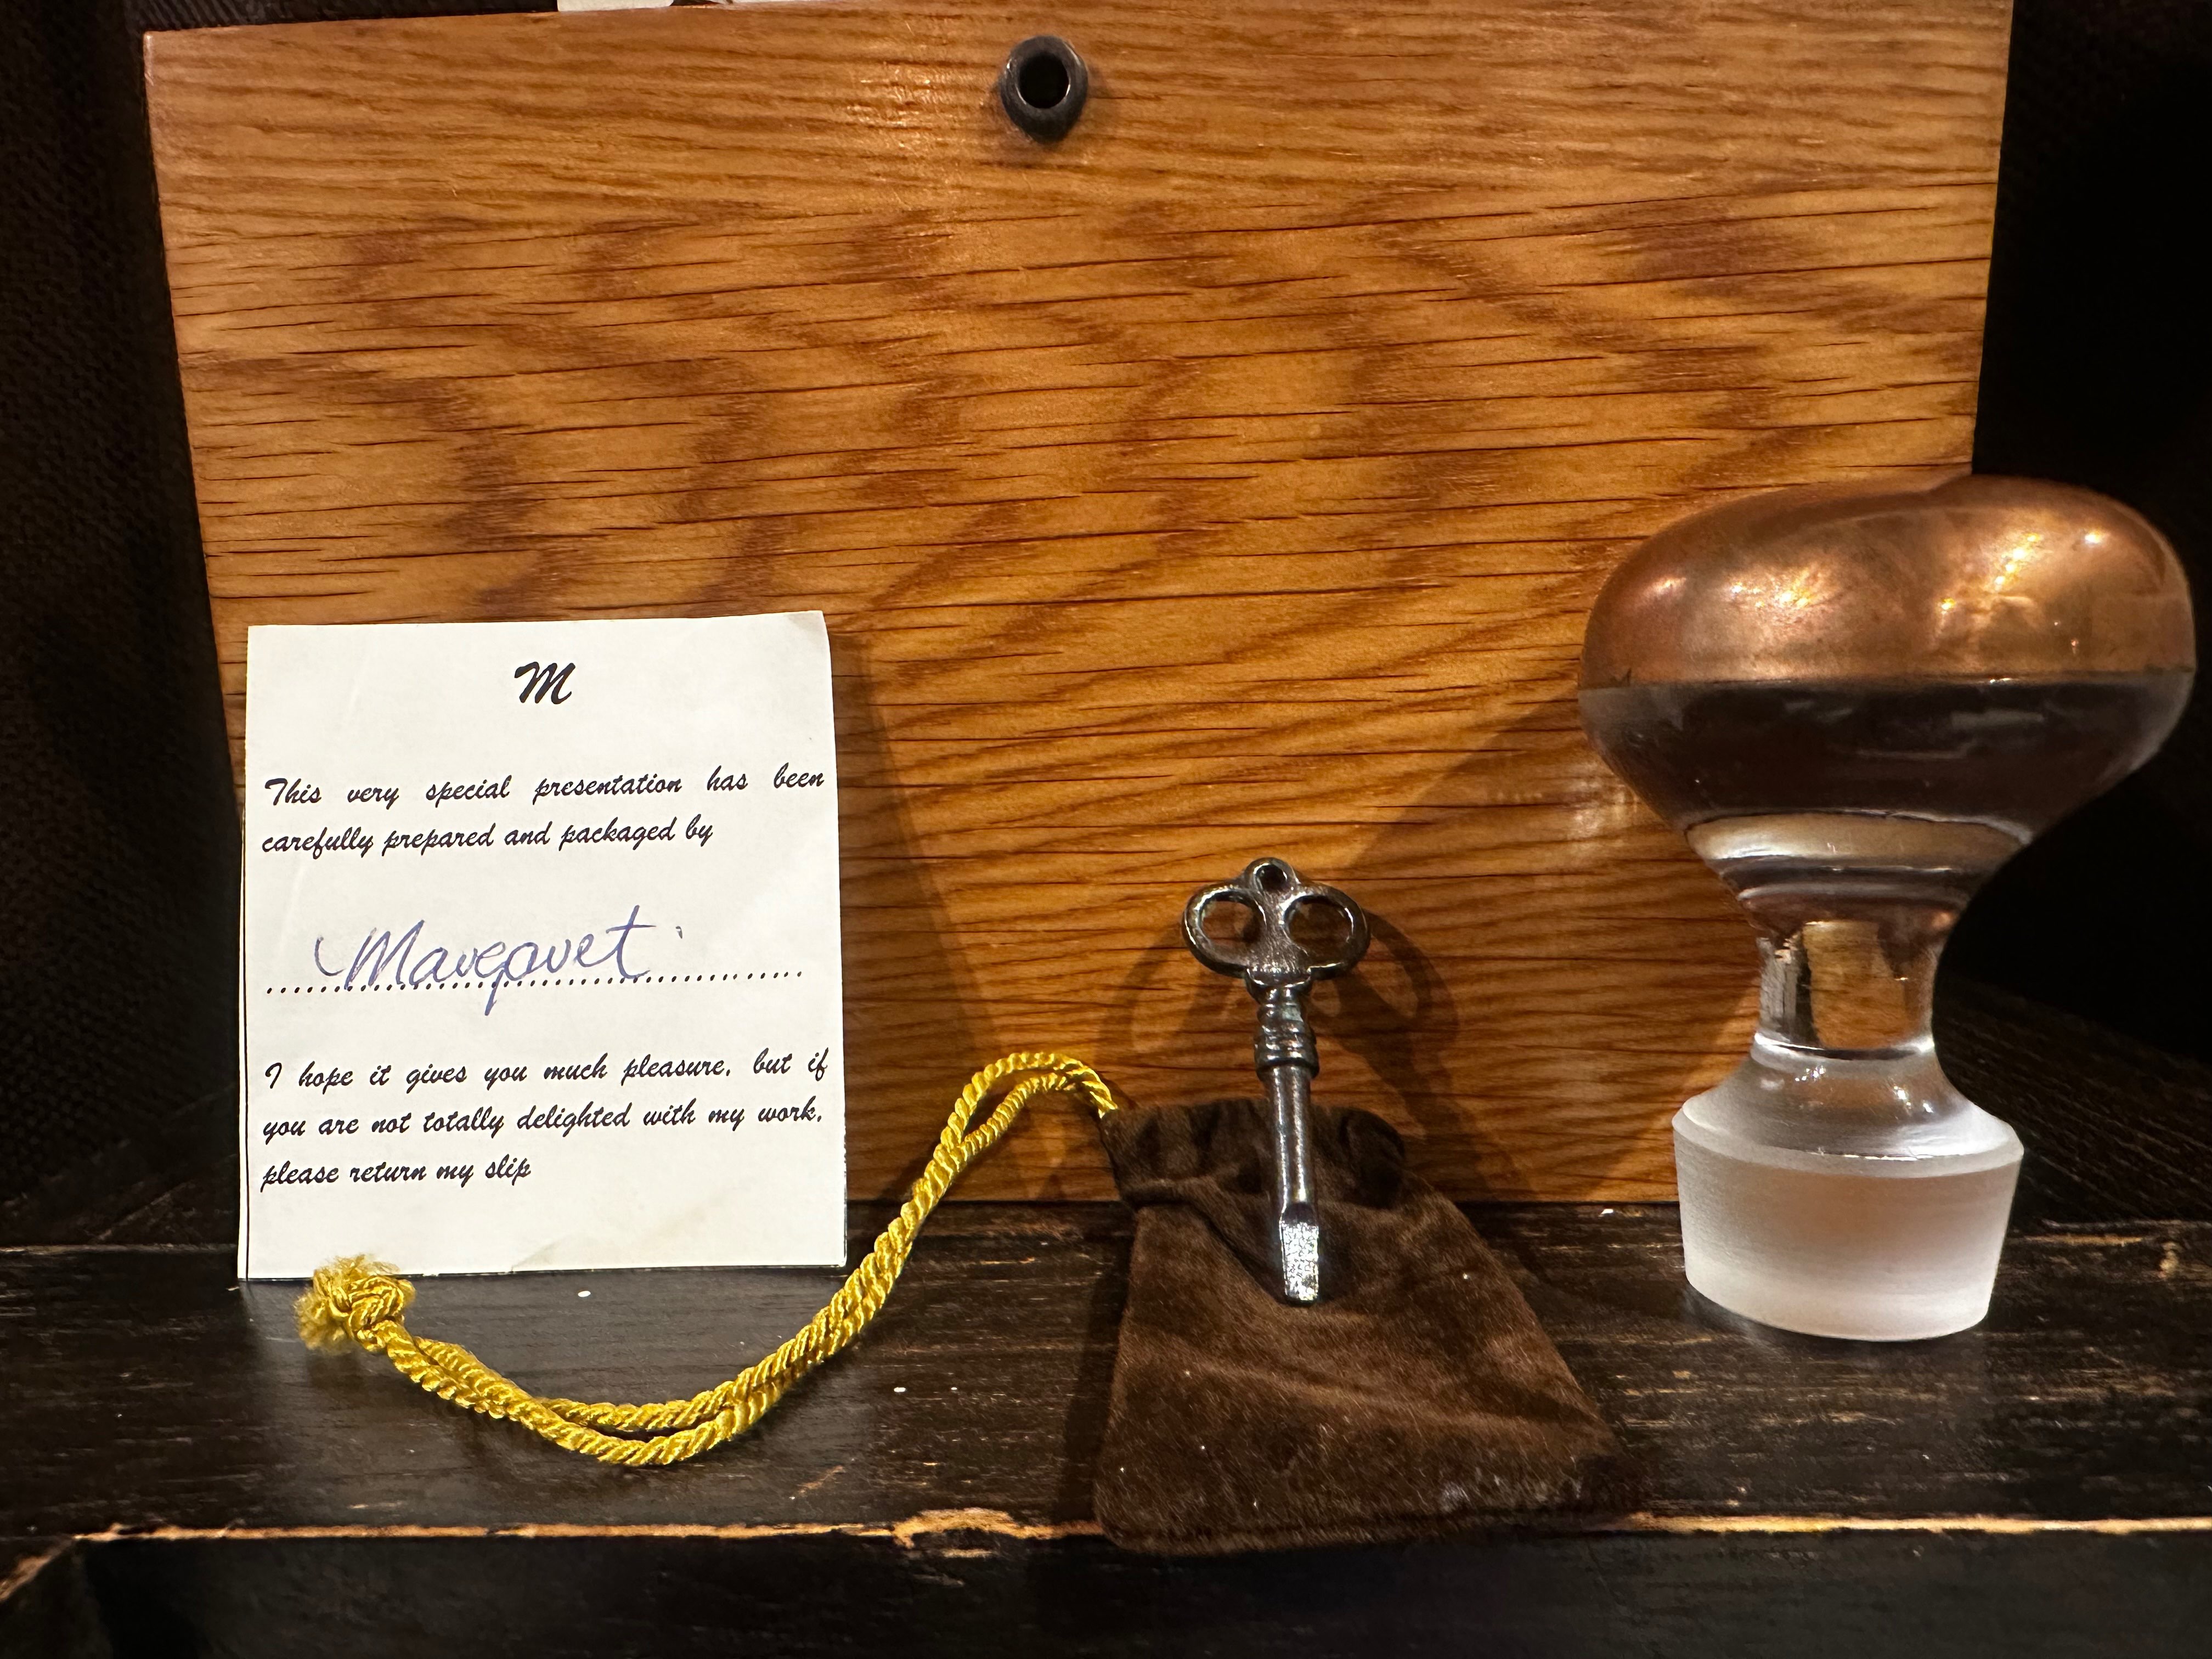 M
This very special presentation has been
carefully prepared and packaged by
I hope it gives you much pleasure, but if
you are not totally delighted with my work,
please return my slip